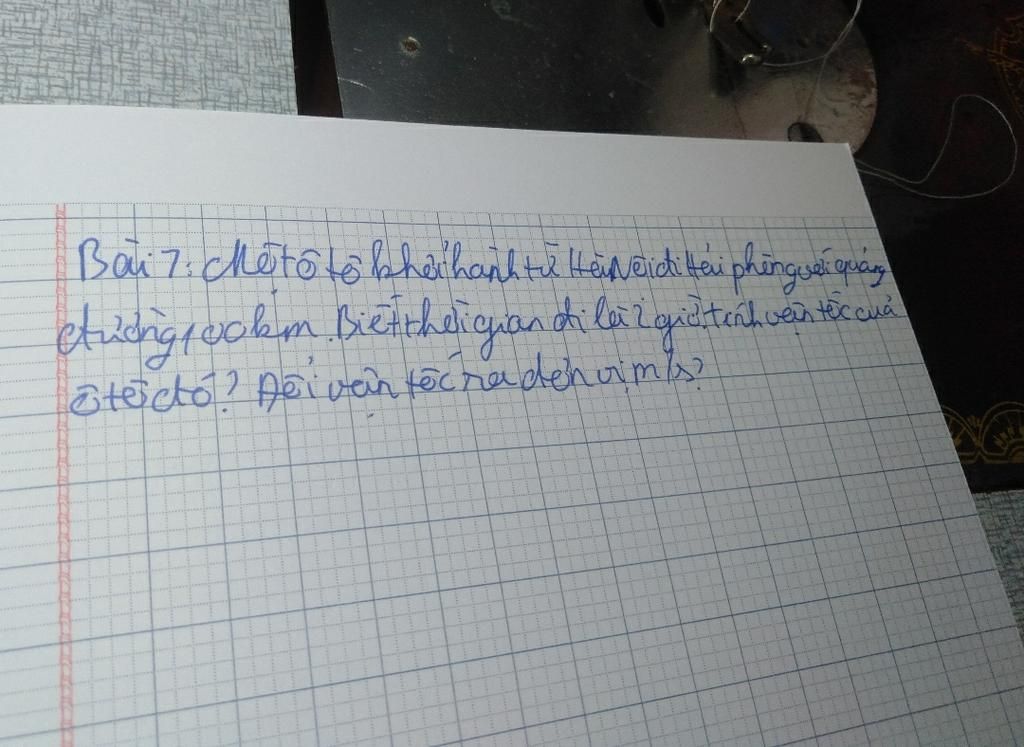 Bài 7: Một ô tô khởi hành từ Hà Nội đi Hải phòng với quảng
đường 100km. Biết thời gian đi là 2 giờ. tính vận tốc của
ô tô đó? Đổi vận tốc ra đơn vị m/s?